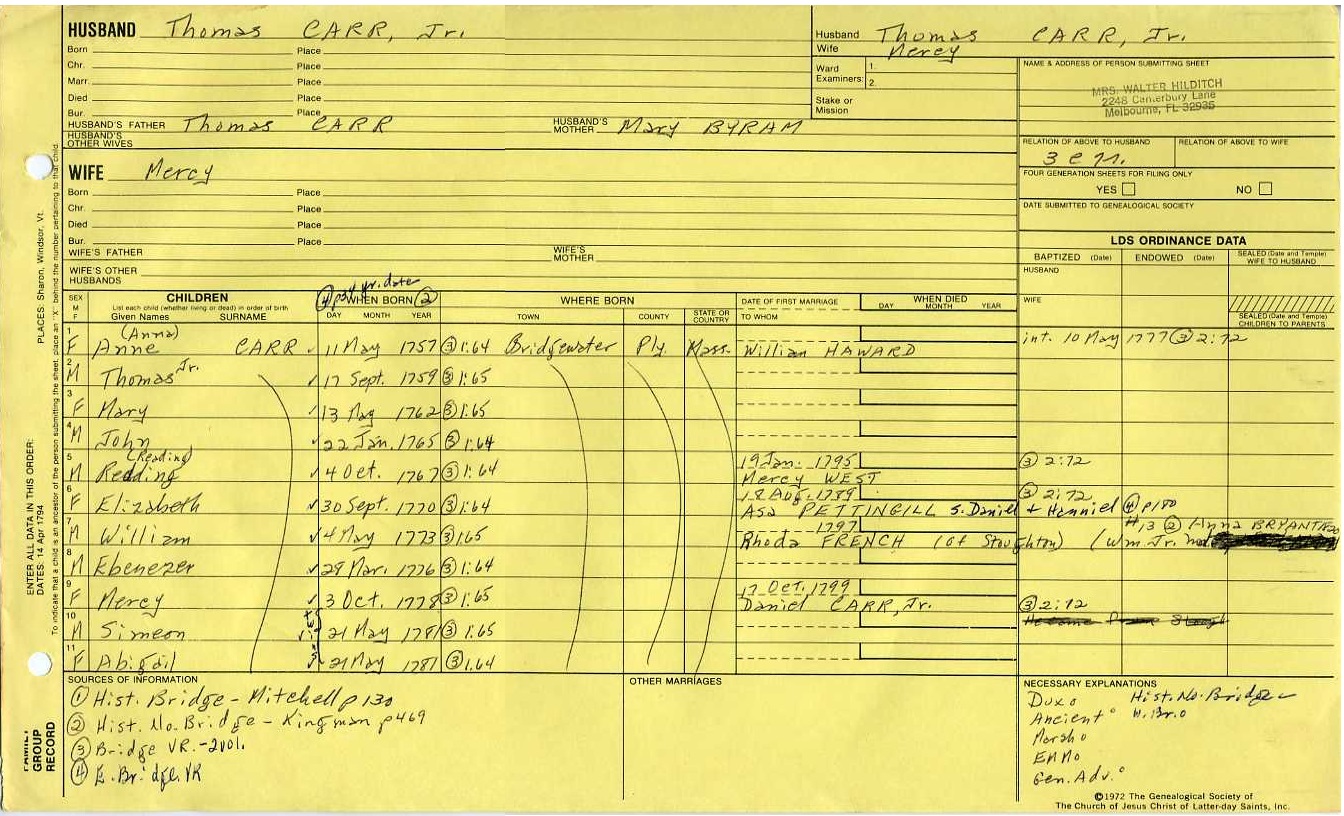 HUSBAND Thomas CARR, Jr.
Born Place
Chr. Place
Marr. Place
Died Place
Bur. Place
HUSBAND'S FATHER Thomas CARR HUSBAND'S MOTHER Mary BYRAM
HUSBAND'S OTHER WIVES
WIFE Mercy
Born Place
Chr. Place
Died Place
Bur. Place
WIFE'S FATHER WIFE'S MOTHER
WIFE'S OTHER HUSBANDS
Husband Thomas CARR, Jr.
Wife Mercy
Ward Examiners: 1. 2.
Stake or Mission
NAME & ADDRESS OF PERSON SUBMITTING SHEET
MRS. WALTER HILDITCH
2248 Canterbury Lane
Melbourne, FL 32935
RELATION OF ABOVE TO HUSBAND RELATION OF ABOVE TO WIFE
FOUR GENERATION SHEETS FOR FILING ONLY
YES NO
DATE SUBMITTED TO GENEALOGICAL SOCIETY
LDS ORDINANCE DATA
BAPTIZED (Date) ENDOWED (Date) SEALED (Date and Temple) WIFE TO HUSBAND
HUSBAND
WIFE
SEALED (Date and Temple) CHILDREN TO PARENTS
④ p34 yr. date
SEX M F CHILDREN WHEN BORN ② WHERE BORN DATE OF FIRST MARRIAGE WHEN DIED
List each child (whether living or dead) in order of birth
Given Names SURNAME DAY MONTH YEAR TOWN COUNTY STATE OR COUNTRY TO WHOM DAY MONTH YEAR
(Anna)
1 F Anne CARR ✓ 11 May 1757 ③ 1:64 Bridgewater Ply. Mass. William HAWARD int. 10 May 1777 ③ 2:72
2 M Thomas Jr. ✓ 17 Sept. 1759 ③ 1:65
3 F Mary ✓ 13 May 1762 ③ 1:65
4 M John ✓ 22 Jan. 1765 ③ 1:64
(Reading) 19 Jan. 1795 ③ 2:72
5 M Redding ✓ 4 Oct. 1767 ③ 1:64 Mercy WEST
18 Aug. 1789 ③ 2:72
6 F Elizabeth ✓ 30 Sept. 1770 ③ 1:64 Asa PETTINGILL s. Daniel + Hanniel ④ p180
1797 #13 ② Anna BRYANT
7 M William ✓ 4 May 1773 ③ 1:65 Rhoda FRENCH (of Stoughton) (Wm. Jr.
8 M Ebenezer ✓ 29 Mar. 1776 ③ 1:64
17 Oct. 1799
9 F Mercy ✓ 3 Oct. 1778 ③ 1:65 Daniel CARR, Jr. ③ 2:72
10 M Simeon ✓ 21 May 1781 ③ 1:65
11 F Abigail ✓ 21 May 1781 ③ 1:64
SOURCES OF INFORMATION OTHER MARRIAGES NECESSARY EXPLANATIONS
① Hist. Bridge - Mitchell p 130
② Hist. No. Bridge - Kingman p469
③ Bridge VR. - 2vol.
④ E. Bridge. VR
Hist. No. Bridge
Ancient° W. Br. o
Gen. Adv.°
©1972 The Genealogical Society of
The Church of Jesus Christ of Latter-day Saints, Inc.
ENTER ALL DATA IN THIS ORDER:
DATES: 14 Apr 1794 PLACES: Sharon, Windsor, Vt.
To indicate that a child is an ancestor of the person submitting the sheet, place an "X" behind the number pertaining to that child.
FAMILY GROUP RECORD